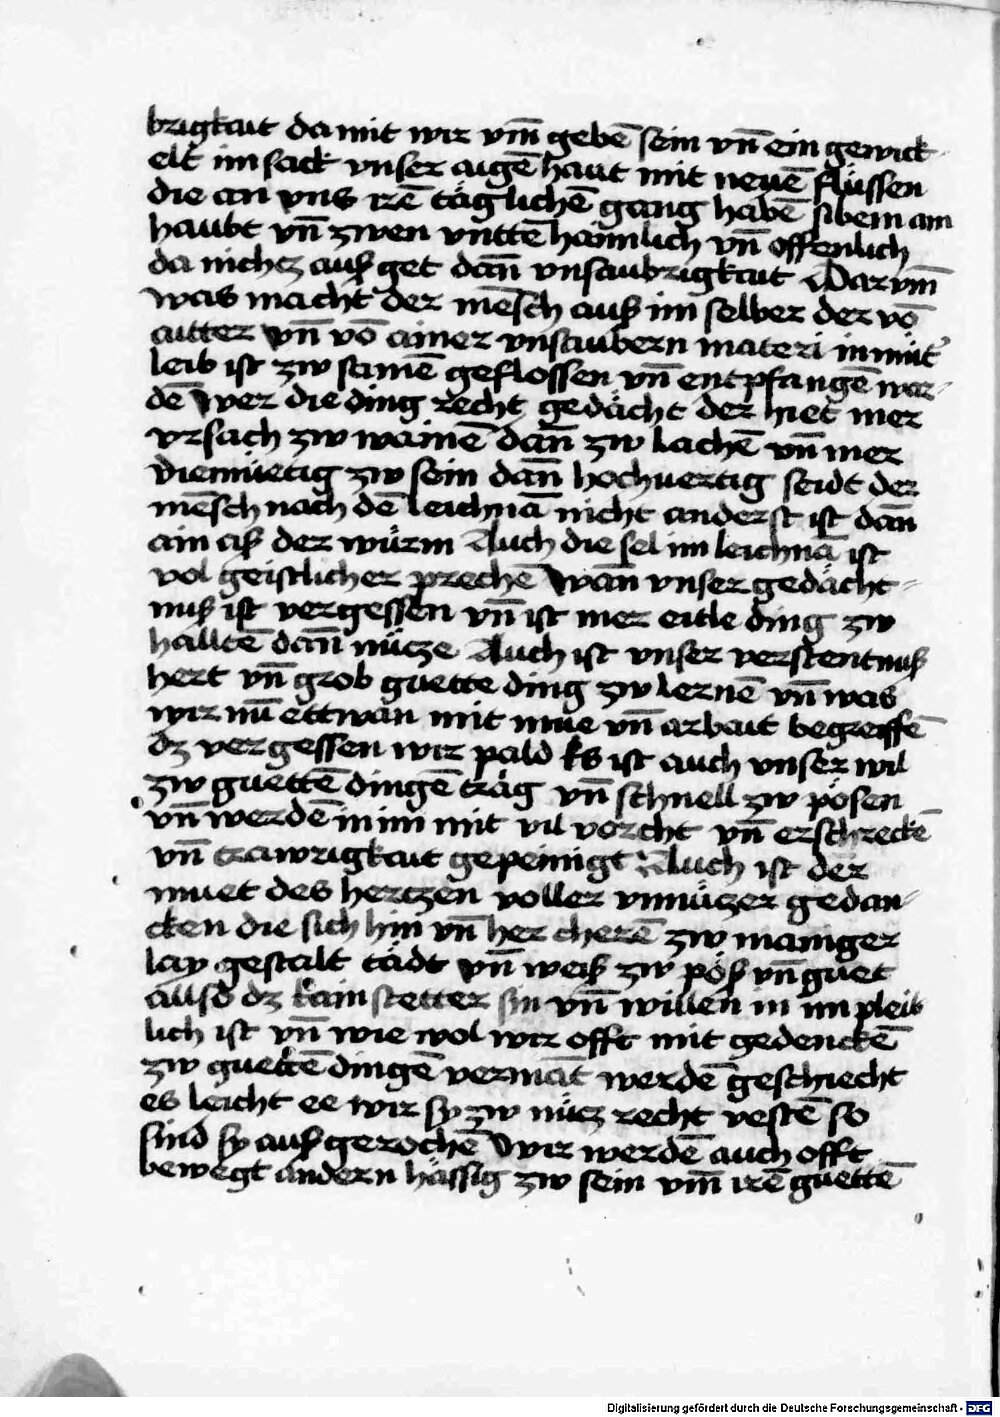 brigkait da mit wir vm̄ gebē sein vn̄ ein gewick-
elt im sack vnser aigē haut mit neuē flüssen
die an vns irē täglichē gang habē sibem am
haubt vn̄ zwen vnttē haimlich vn̄ offenlich
da nichcz auß get dan̄ vnsaubrigkait Darvm̄
was macht der mēsch auß im selber der vō
aitter vn̄ vō ainer vnsaubern materi in mūt̄
leib ist zw samē geflossen vn̄ entpfangē wor-
dē Wer die ding recht gedächt der hiet mer
vrsach zw wainē dan̄ zw lachē vn̄ mer
diemüetig zw sein dan̄ hochuertig seidt der
mēsch nach dē leichnā nicht anderst ist dan̄
ain aß der würm Auch die sel im leichnā ist
vol geistlicher prechē Wan̄ vnser gedächt-
nuß ist vergessen vn̄ ist mer eitle ding zw
halltē dan̄ nücze Auch ist vnser verstentnuß
hert vn̄ grob guette ding zw lernē vn̄ was
wir nū ettwan mit mue vn̄ arbait begreiffē
dz vergessen wir pald Es ist auch vnser wil
zw guettē dingē träg vn̄ schnell zw pösen
vn̄ werdē in im mit vil vorcht vn̄ erschreckē
vn̄ trawrigkait gepeinigt Auch ist der
muet des herczen voller vnnüczer gedan-
cken die sich hin vn̄ her cherē zw maniger
lay gestalt tädt vn̄ weiß zw pöß vn̄ guet
allso dz kain stetter sin vn̄ willen in im pleib
lich ist vn̄ wie wol wir offt mit gedenckē
zw guettē dingē vermāt werdē geschiecht
es leicht ee wir sy zw nücz recht vestē so
sind sy auß gerochē Wir werdē auch offt
bewegt andern hässig zw sein vm̄ irē guettē
Digitalisierung gefördert durch die Deutsche Forschungsgemeinschaft - DFG